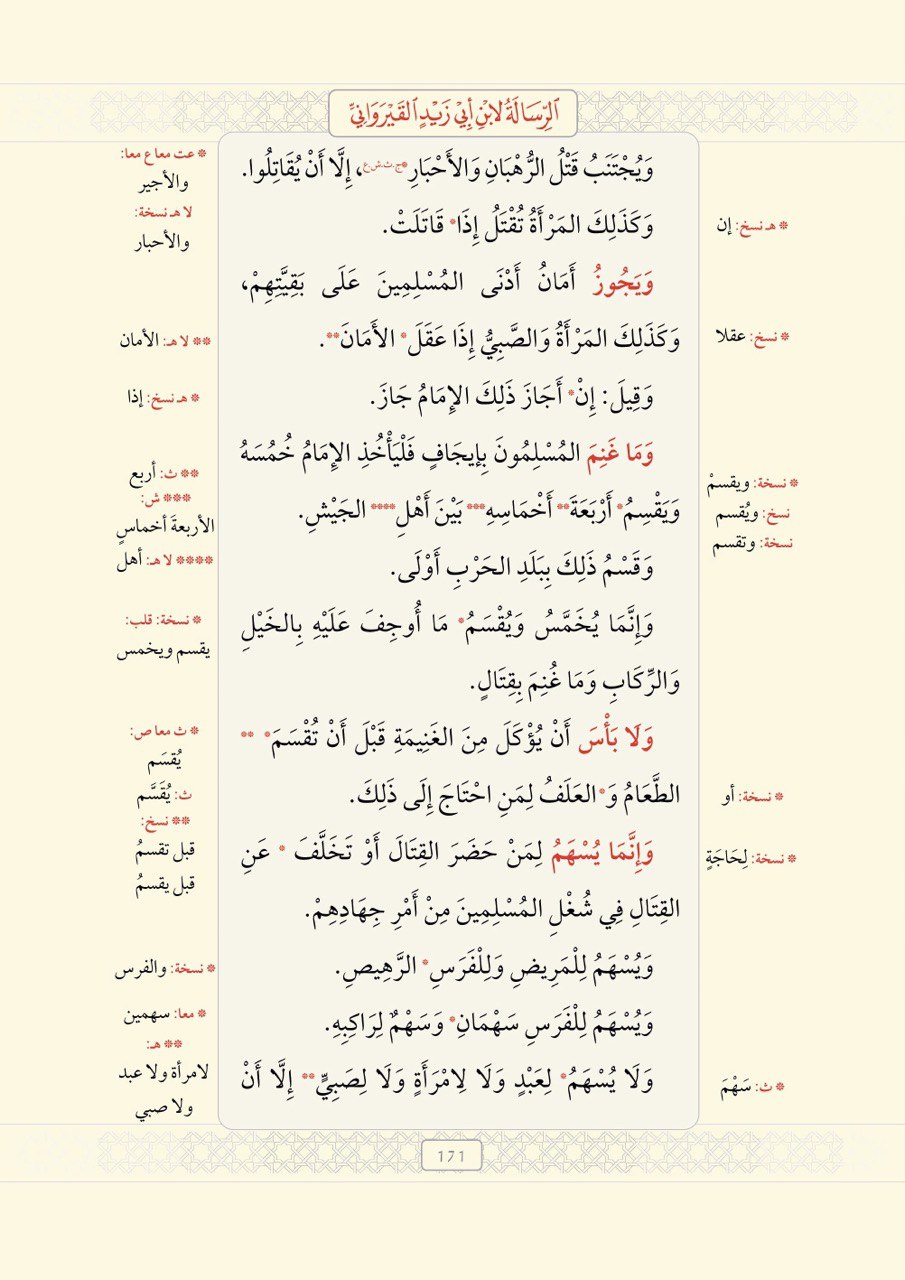 الرِّسَالَةُ لِابْنِ أَبِي زَيْدٍ القَيْرَوَانِيِّ
وَيُجْتَنَبُ قَتْلُ الرُّهْبَانِ وَالأَحْبَارِ*ح.ث.ش.ع، إِلَّا أَنْ يُقَاتِلُوا.
وَكَذَلِكَ المَرْأَةُ تُقْتَلُ إِذَا* قَاتَلَتْ.
وَيَجُوزُ أَمَانُ أَدْنَى المُسْلِمِينَ عَلَى بَقِيَّتِهِمْ،
وَكَذَلِكَ المَرْأَةُ وَالصَّبِيُّ إِذَا عَقَلَ* الأَمَانَ**.
وَقِيلَ: إِنْ* أَجَازَ ذَلِكَ الإِمَامُ جَازَ.
وَمَا غَنِمَ المُسْلِمُونَ بِإيجَافٍ فَلْيَأْخُذِ الإِمَامُ خُمُسَهُ
وَيَقْسِمُ* أَرْبَعَةَ** أَخْمَاسِهِ*** بَيْنَ أَهْلِ**** الجَيْشِ.
وَقَسْمُ ذَلِكَ بِبَلَدِ الحَرْبِ أَوْلَى.
وَإِنَّمَا يُخَمَّسُ وَيُقْسَمُ* مَا أُوجِفَ عَلَيْهِ بِالخَيْلِ
وَالرِّكَابِ وَمَا غُنِمَ بِقِتَالٍ.
وَلَا بَأْسَ أَنْ يُؤْكَلَ مِنَ الغَنِيمَةِ قَبْلَ أَنْ تُقْسَمَ* **
الطَّعَامُ وَ*العَلَفُ لِمَنِ احْتَاجَ إِلَى ذَلِكَ.
وَإِنَّمَا يُسْهَمُ لِمَنْ حَضَرَ القِتَالَ أَوْ تَخَلَّفَ * عَنِ
القِتَالِ فِي شُغْلِ المُسْلِمِينَ مِنْ أَمْرِ جِهَادِهِمْ.
وَيُسْهَمُ لِلْمَرِيضِ وَلِلْفَرَسِ* الرَّهِيصِ.
وَيُسْهَمُ لِلْفَرَسِ سَهْمَانِ* وَسَهْمٌ لِرَاكِبِهِ.
وَلَا يُسْهَمُ* لِعَبْدٍ وَلَا لِامْرَأَةٍ وَلَا لِصَبِيٍّ** إِلَّا أَنْ
* هـ نسخ: إن
* نسخ: عقلا
* نسخة: ويقسمْ
نسخ: ويُقسم
نسخة: وتقسم
* نسخة: أو
* نسخة: لِحَاجَةٍ
* ث: سَهْمَ
* عت معا ع معا:
والأجير
لا هـ نسخة:
والأحبار
** لا هـ: الأمان
* هـ نسخ: إذا
** ث: أربع
*** ش:
الأربعةَ أخماسٍ
**** لا هـ: أهل
* نسخة: قلب:
يقسم ويخمس
* ث معا ص:
يُقسَم
ث: يُقَسَّم
** نسخ:
قبل تقسمُ
قبل يقسمُ
* نسخة: والفرس
* معا: سهمين
** هـ:
لامرأة ولا عبد
ولا صبي
171